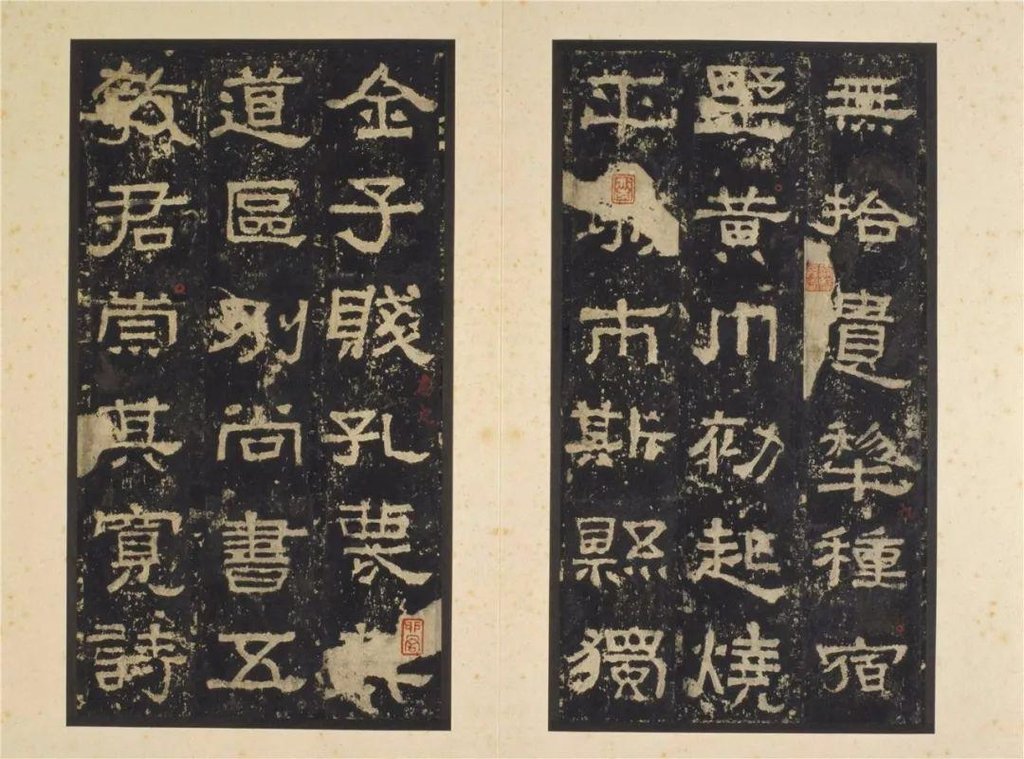 無拾遺犂種宿
野黃巾初起燒
平市斯縣獨
全子賤孔蔑其
道區別尚書五
教君崇其寬詩